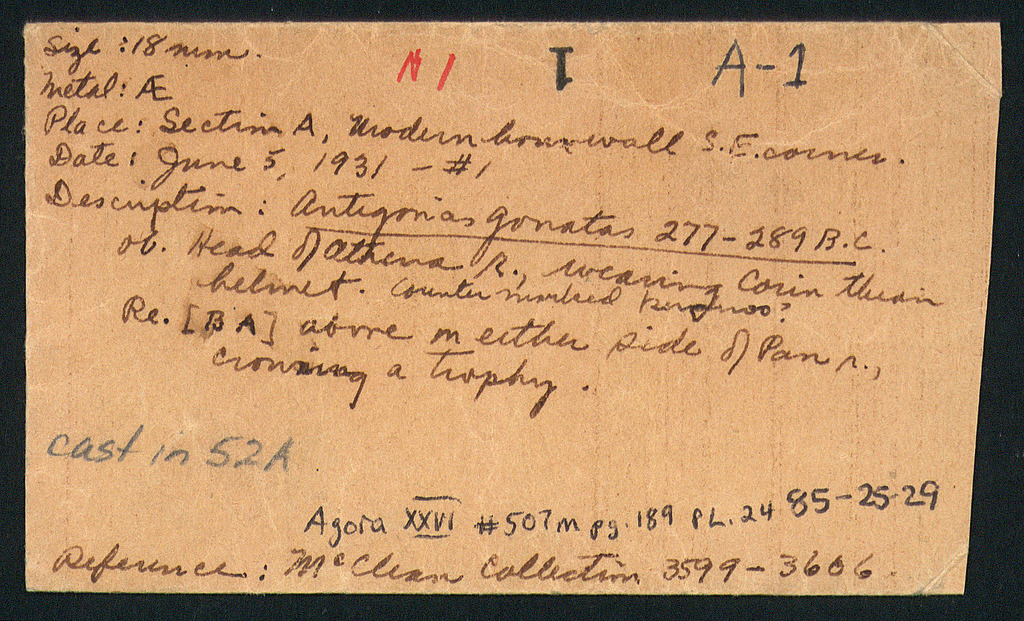 Size : 18 mm.
N 1 I A-1
Metal: Æ
Place: Section A, Modern house wall S.E. corner.
Date: June 5, 1931 - #1
Description: Antigonas Gonatas 277-289 B.C.
ob. Head of Athena R., wearing Corinthian
helmet. Counter
Re. [B A] above on either side of Pan r.,
crowning a trophy.
cast in 52A
Agora XXVI #507m pg. 189 PL. 24 85-25-29
Reference: McClean Collection 3599-3606